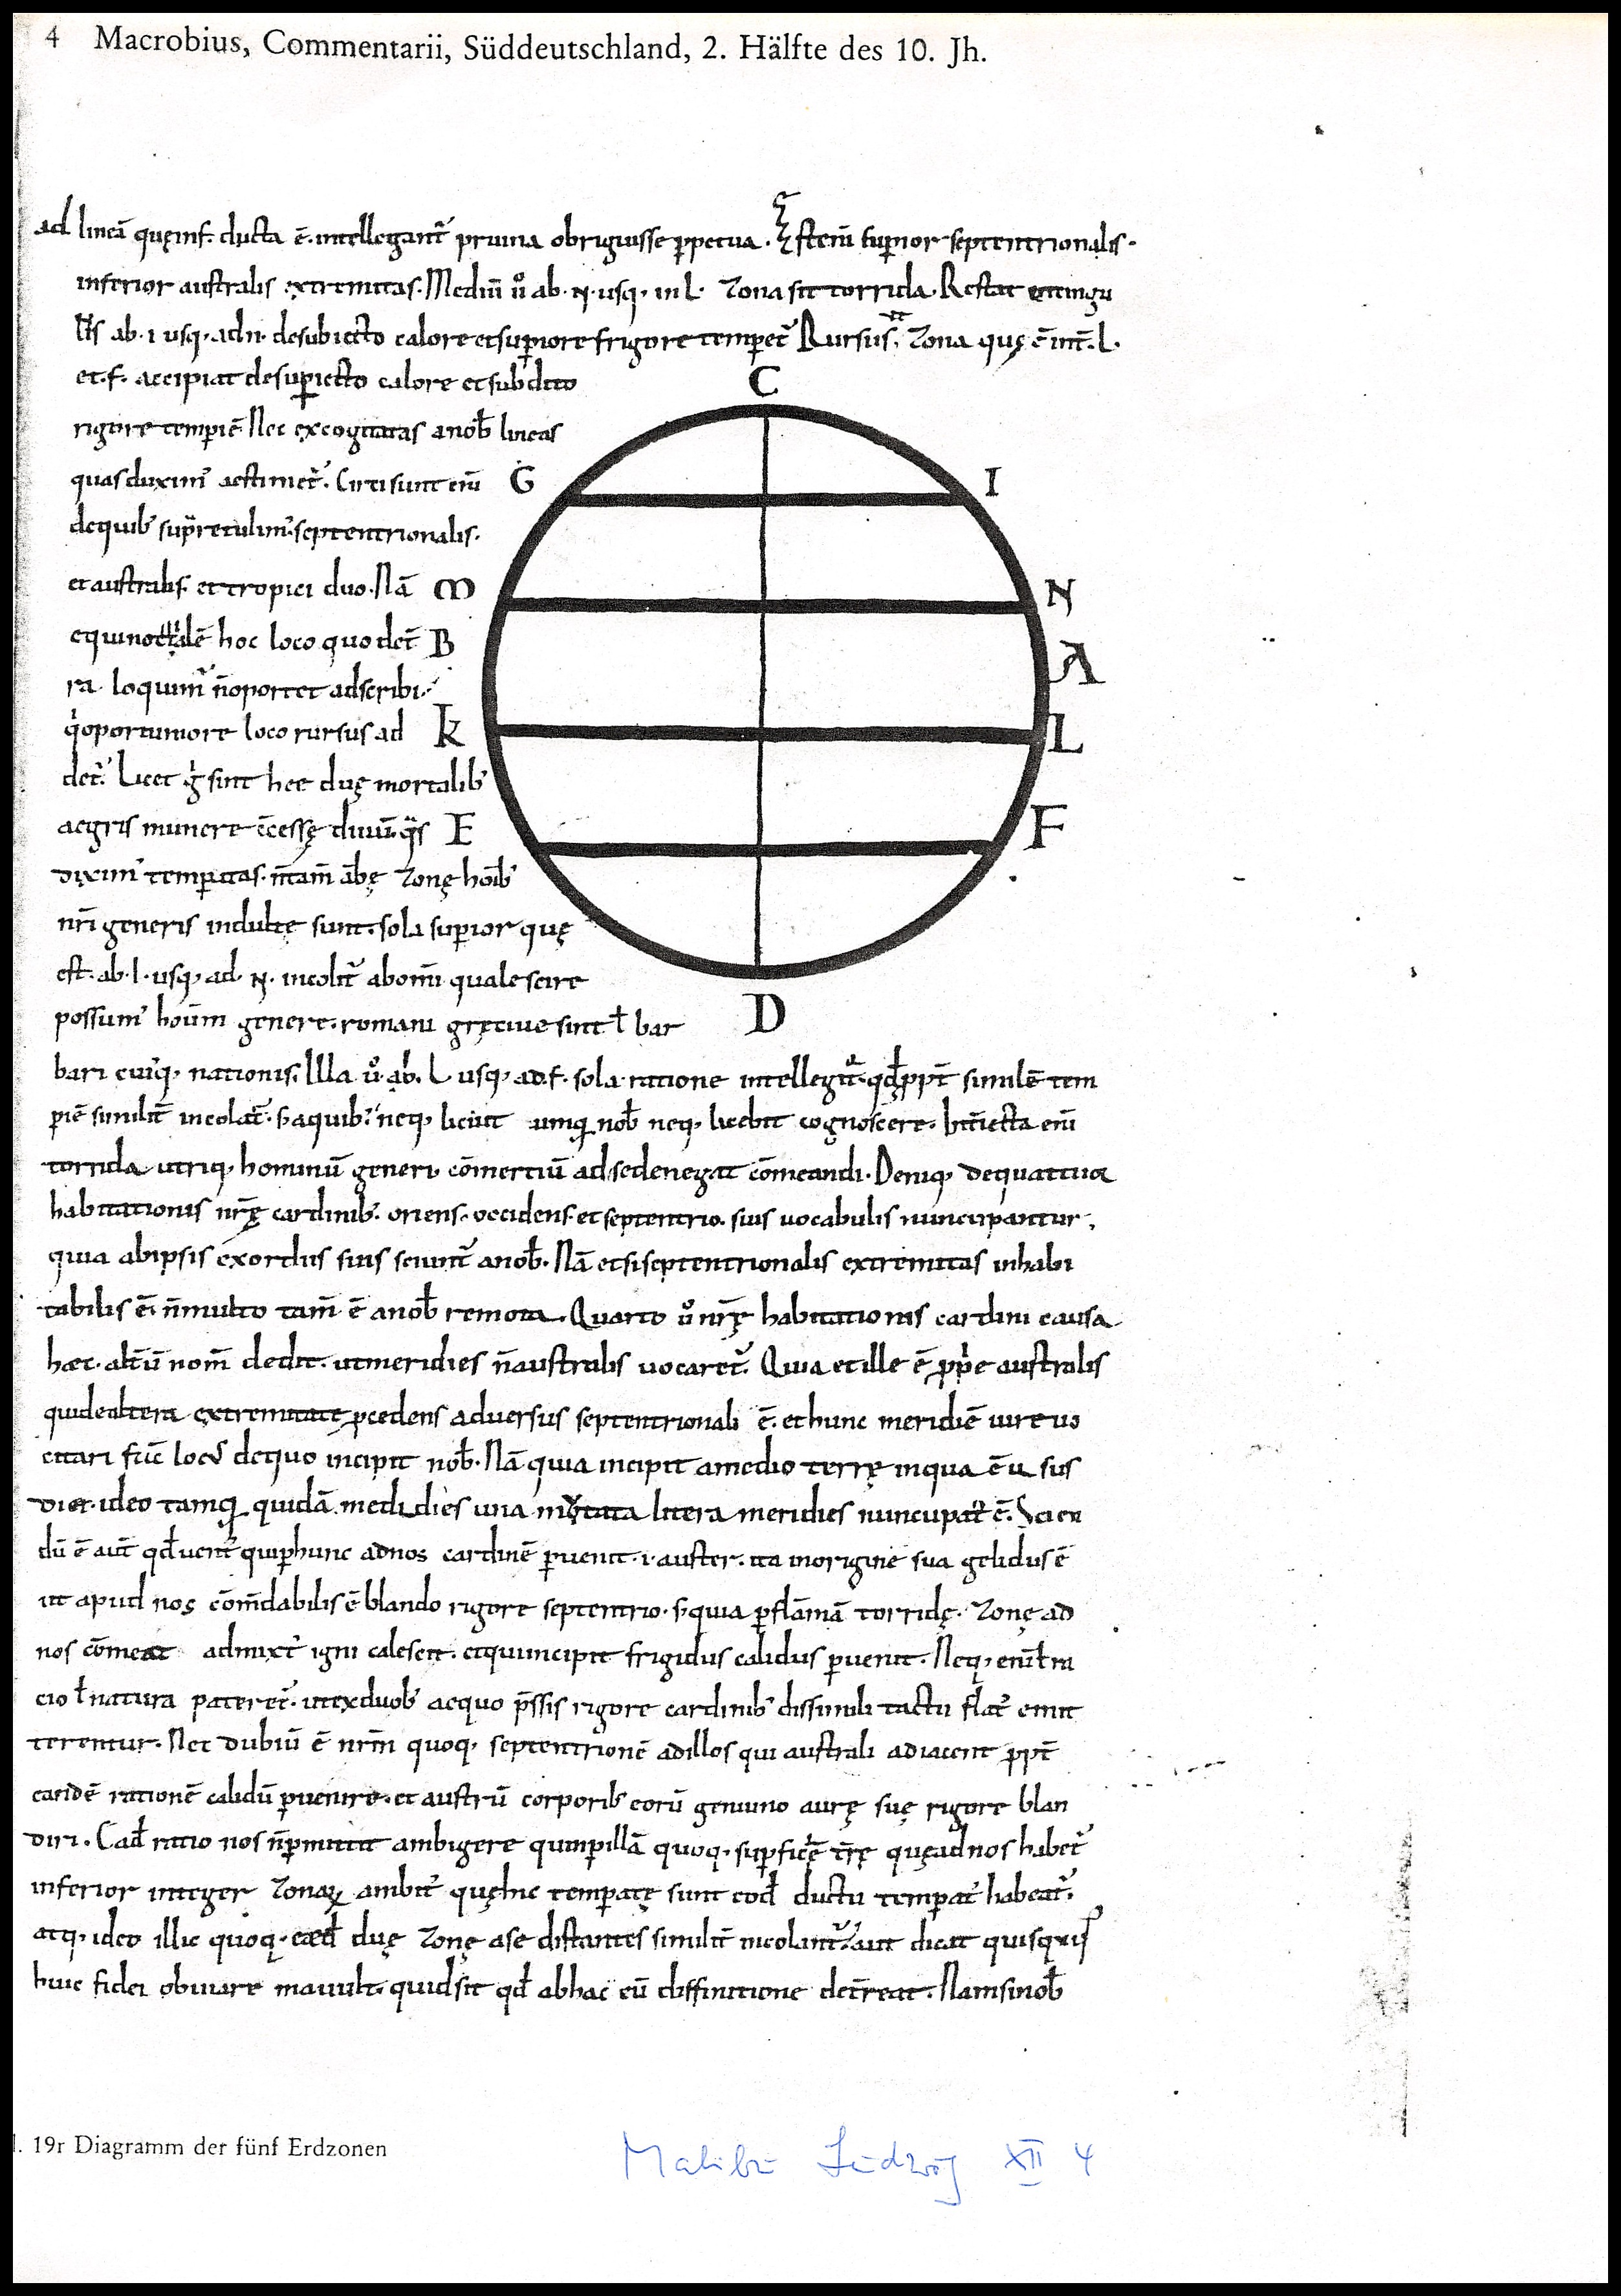 4 Macrobius, Commentarii, Süddeutschland, 2. Hälfte des 10. Jh.
ad lineā quęinf. ducta ē. intellegant᷑ pruina obriguisse ꝑpetua. ē enī suꝑior septentrionalis.
inferior australis extremitas. Mediū ů ab. N. usq; in L. Zona sit torrida. Restat
ab. i usq; ad n. desubiecto calore et suꝑiore frigore temꝑet᷑ Rursus, Zona quę ē int̄. L.
et. f. accipiat desuꝑiecto calore et subdito
rigore temꝑiē Nec excogitatas anob̄ lineas
quas duxim᾽ aestimet᷑. Circi sunt enī G
C
I
dequib᾽ sup̄retulim᾽. septentrionalis.
et australis. et tropici duo. Nā M
N
equinoctialē hoc loco quo det̄ B
A
ra loquim᾽ n̄oportet adscribi.
oportuniore loco rursus ad K
L
det᷑. Licet g̊ sint hee duę mortalib᾽
aegris munere c̄cessę diuū. q̄s E
F
dixim᾽ temꝑatas. n̄ tam̄ ābę Zonę hoīb᾽
nr̄i generis indultę sunt. sola suꝑior quę
est. ab. l. usq; ad. N. incolit᷑ abom̄i quale scire
possum᾽ hoūm genere. romani gręciue sint ł bar D
bari cui᾽q; nationis. Illa ů. ab. L usq; ad. f. sola ratione intellegit᷑. qđ ꝓpt̄ similē tem
ꝑiē similit̄ incolat᷑. s; aquib᾽. neq; licuit umq̄ nob̄ neq; licebit cognoscere. Int̄iecta enī
torrida utriq; hominū generi cōmertiū ad se denegat cōmeandi. Deniq; dequattuor
habitationis nr̄ę cardinib᾽. oriens. occidens. et septentrio. suis uocabulis nuncupantur.
quia abipsis exordiis suis sciunt᷑ anob̄. Nā etsi septentrionalis extremitas inhabi
tabilis ē. n̄ multo tam̄ ē anob̄ remota. Quarto ů nr̄ę habitationis cardini causa
hæc. alt̄ū nom̄ dedit. ut meridies n̄ australis uocaret᷑. Quia et ille ē ꝓpͥe australis
qui de altera extremitate ꝓcedens aduersus septentrionali ē. et hunc meridiē iure uo
citari fac̄ loc᾽ dequo incipit nob̄. Nā quia incipit amedio terrę inqua ē u sus
diei. ideo tamq̄ quidā medidies una mutata litera meridies nuncupat᾽ ē. Scien
dū ē aut̄ qđ uent᾽ qui ꝑ hunc adnos cardinē ꝑuenit. i. auster. ita inorigine sua gelidus ē
ut apud nos cōm̄dabilis ē blando rigore septentrio. s; quia ꝑ flāmā torridę. Zonę ad
nos cōmeat admixt᾽ igni calescit. et qui incipit frigidus calidus ꝑuenit. Neq; enī ł ra
cio ł natura pateret᷑. ut exduob᾽ aequo p̄ssis rigore cardinib᾽ dissimili tactu flat᾽ emit
terentur. Nec dubiū ē nr̄m quoq; septentrionē adillos qui australi adiacent ꝓpt̄
eandē rationē calidū ꝑuenire. et austrū corporib᾽ eorū gemino aurę suę rigore blan
diri. Eađ ratio nos n̄ ꝑmittit ambigere quin ꝑ illā quoq; suꝑficiē t̄rę quęadnos habet᷑
inferior integer Zonaꝝ ambit᾽ quę hic temꝑatę sunt eođ ductu temꝑat᾽ habeat᷑.
atq; ideo illic quoq; eæđ duę Zonę ase distantes similit̄ incolant᷑. aut dicat quisquis
huic fidei obuiare mauult. quid sit qđ abhac eū diffinitione det̄reat. Nam si nob̄
l. 19r Diagramm der fünf Erdzonen
Malibu Ludwig XII 4